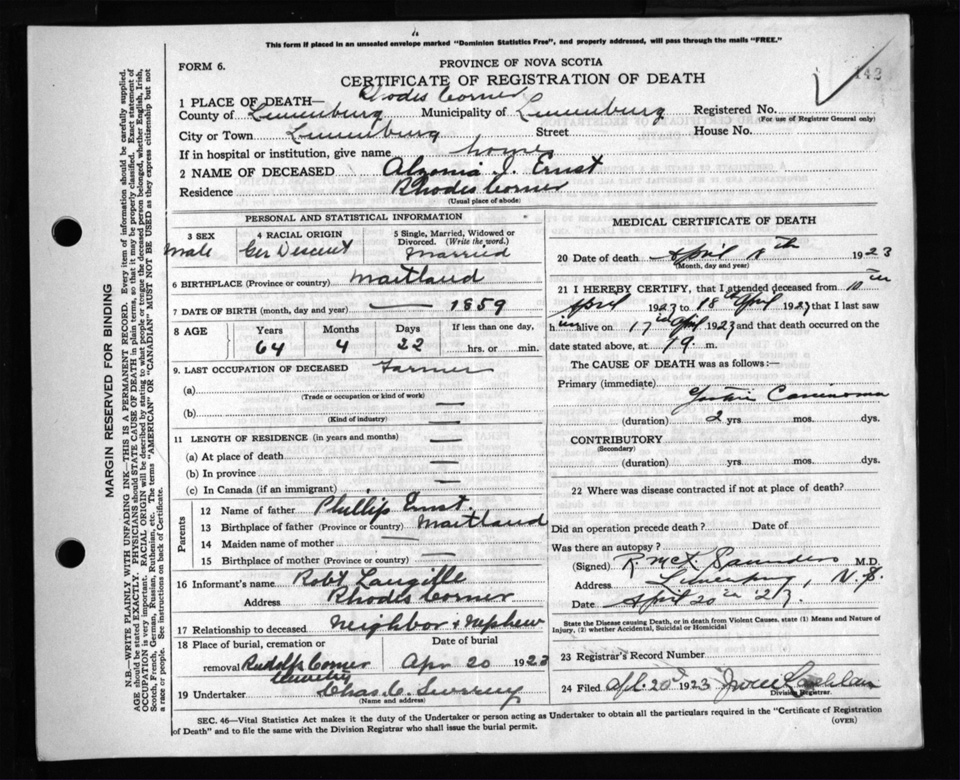 This form if placed in an unsealed envelope marked "Dominion Statistics Free", and properly addressed, will pass through the mails "FREE."
FORM 6.
PROVINCE OF NOVA SCOTIA
CERTIFICATE OF REGISTRATION OF DEATH
142
1 PLACE OF DEATH— Rhodes Corner
County of Lunenburg Municipality of Lunenburg Registered No.
(For use of Registrar General only)
City or Town Lunenburg Street House No.
If in hospital or institution, give name home
2 NAME OF DECEASED J. Ernst
Residence Rhodes Corner
(Usual place of abode)
PERSONAL AND STATISTICAL INFORMATION
3 SEX 4 RACIAL ORIGIN 5 Single, Married, Widowed or Divorced. (Write the word.)
Male Ger Descent Married
6 BIRTHPLACE (Province or country) Maitland
7 DATE OF BIRTH (month, day and year) — 1859
8 AGE Years Months Days If less than one day,
64 4 22 hrs. or min.
9. LAST OCCUPATION OF DECEASED Farmer
(a)
(Trade or occupation or kind of work)
(b)
(Kind of industry)
11 LENGTH OF RESIDENCE (in years and months)
(a) At place of death
(b) In province
(c) In Canada (if an immigrant)
Parents
12 Name of father Phillip Ernst
13 Birthplace of father (Province or country) Maitland
14 Maiden name of mother —
15 Birthplace of mother (Province or country) —
16 Informant's name Robt Langille
Address Rhodes Corner
17 Relationship to deceased Neighbor & Nephew
18 Place of burial, cremation or removal Rudolfs Corner Cemetery
Date of burial Apr 20 1923
19 Undertaker Chas. C.
(Name and address)
MEDICAL CERTIFICATE OF DEATH
20 Date of death April 18th 1923
(Month, day and year)
21 I HEREBY CERTIFY, that I attended deceased from 10th
April 1923 to 18th April 1923 that I last saw
him alive on 17th April 1923 and that death occurred on the
date stated above, at m.
The CAUSE OF DEATH was as follows:—
Primary (immediate) Gastric Carcinoma
(duration) 2 yrs. mos. dys.
CONTRIBUTORY
(Secondary)
(duration) yrs. mos. dys.
22 Where was disease contracted if not at place of death?
Did an operation precede death? Date of
Was there an autopsy?
(Signed) R. McK Saunders M.D.
Address Lunenburg, N.S.
Date April 20th '23.
State the Disease causing Death, or in death from Violent Causes, state (1) Means and Nature of
Injury, (2) whether Accidental, Suicidal or Homicidal
23 Registrar's Record Number
24 Filed Apl. 20th 1923
Division Registrar.
SEC. 46—Vital Statistics Act makes it the duty of the Undertaker or person acting as Undertaker to obtain all the particulars required in the "Certificate of Registration
of Death" and to file the same with the Division Registrar who shall issue the burial permit.
(OVER)
MARGIN RESERVED FOR BINDING
N.B.—WRITE PLAINLY WITH UNFADING INK—THIS IS A PERMANENT RECORD. Every item of information should be carefully supplied.
AGE should be stated EXACTLY. PHYSICIANS should STATE CAUSE OF DEATH in plain terms, so that it may be properly classified. Exact statement of
OCCUPATION is very important. RACIAL ORIGIN will be described by stating to what people or tongue the deceased person belonged, whether English, Irish,
Scotch, French, German, Russian, Ruthenian, etc. The terms "AMERICAN" OR "CANADIAN" MUST NOT BE USED as they express citizenship but not
a race or people. See instructions on back of Certificate.